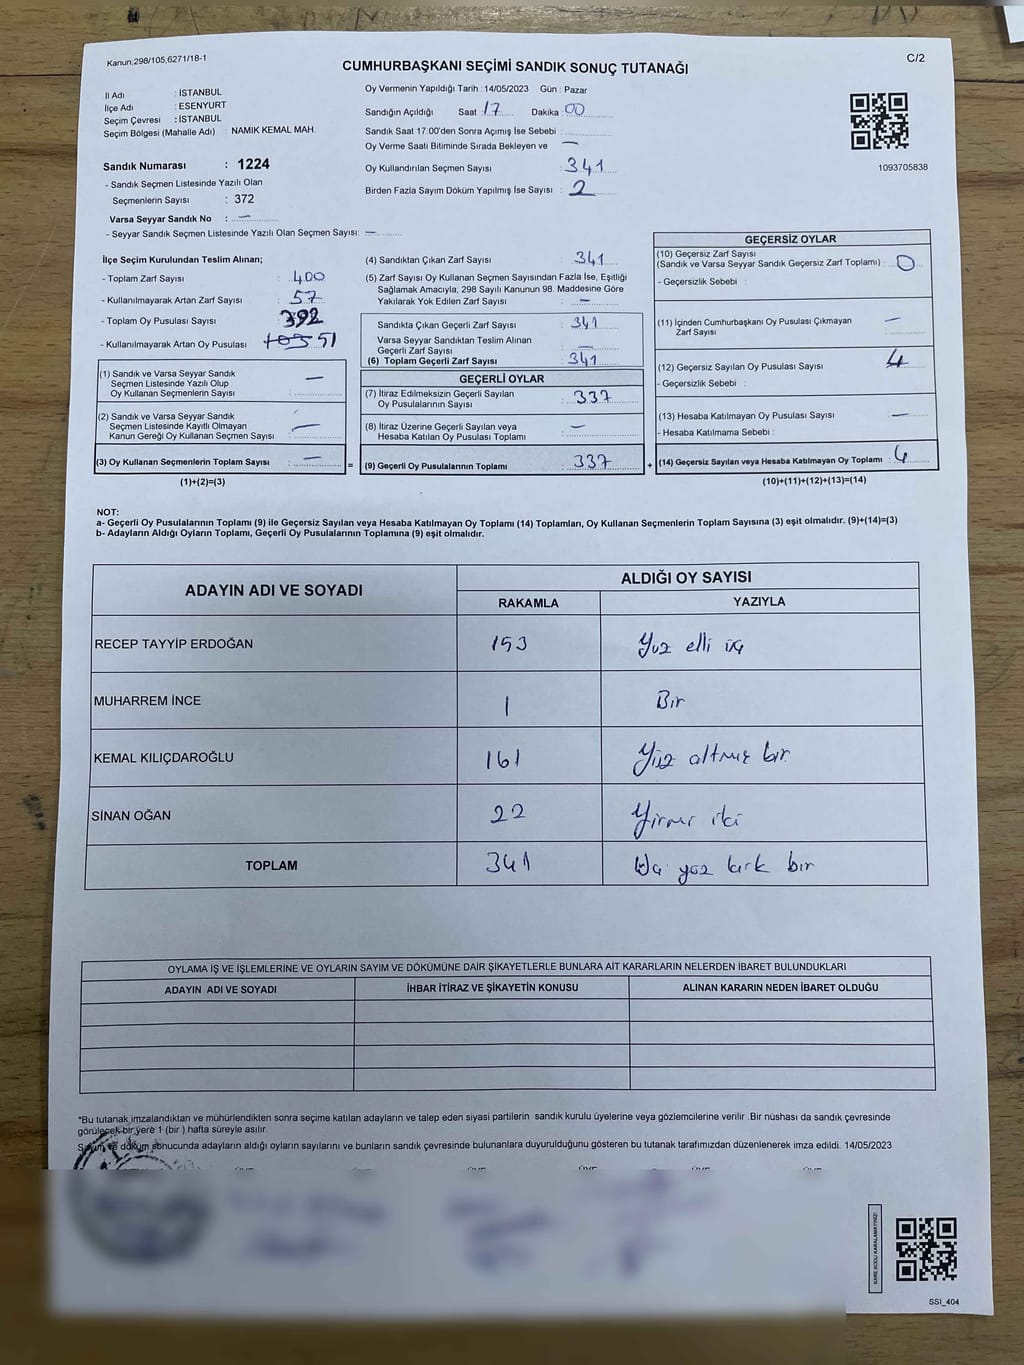 Kanun;298/105,6271/18-1
C/2
CUMHURBAŞKANI SEÇİMİ SANDIK SONUÇ TUTANAĞI
İl Adı : İSTANBUL
İlçe Adı : ESENYURT
Seçim Çevresi : İSTANBUL
Seçim Bölgesi (Mahalle Adı) : NAMIK KEMAL MAH.
Oy Vermenin Yapıldığı Tarih : 14/05/2023 Gün : Pazar
Sandığın Açıldığı Saat 17 Dakika 00
Sandık Saat 17:00'den Sonra Açımış İse Sebebi :
Oy Verme Saati Bitiminde Sırada Bekleyen ve —
Oy Kullandırılan Seçmen Sayısı : 341
Birden Fazla Sayım Döküm Yapılmış İse Sayısı : 2
1093705838
Sandık Numarası : 1224
- Sandık Seçmen Listesinde Yazılı Olan
Seçmenlerin Sayısı : 372
Varsa Seyyar Sandık No : —
- Seyyar Sandık Seçmen Listesinde Yazılı Olan Seçmen Sayısı: —
İlçe Seçim Kurulundan Teslim Alınan;
- Toplam Zarf Sayısı : 400
- Kullanılmayarak Artan Zarf Sayısı : 57
- Toplam Oy Pusulası Sayısı : 392
- Kullanılmayarak Artan Oy Pusulası 51
(1) Sandık ve Varsa Seyyar Sandık
Seçmen Listesinde Yazılı Olup
Oy Kullanan Seçmenlerin Sayısı : —
(2) Sandık ve Varsa Seyyar Sandık
Seçmen Listesinde Kayıtlı Olmayan
Kanun Gereği Oy Kullanan Seçmen Sayısı : —
(3) Oy Kullanan Seçmenlerin Toplam Sayısı : — =
(1)+(2)=(3)
(4) Sandıktan Çıkan Zarf Sayısı : 341
(5) Zarf Sayısı Oy Kullanan Seçmen Sayısından Fazla İse, Eşitliği
Sağlamak Amacıyla; 298 Sayılı Kanunun 98. Maddesine Göre
Yakılarak Yok Edilen Zarf Sayısı : —
Sandıkta Çıkan Geçerli Zarf Sayısı : 341
Varsa Seyyar Sandıktan Teslim Alınan
Geçerli Zarf Sayısı : —
(6) Toplam Geçerli Zarf Sayısı : 341
GEÇERLİ OYLAR
(7) İtiraz Edilmeksizin Geçerli Sayılan
Oy Pusulalarının Sayısı : 337
(8) İtiraz Üzerine Geçerli Sayılan veya
Hesaba Katılan Oy Pusulası Toplamı : —
(9) Geçerli Oy Pusulalarının Toplamı : 337 +
GEÇERSİZ OYLAR
(10) Geçersiz Zarf Sayısı
(Sandık ve Varsa Seyyar Sandık Geçersiz Zarf Toplamı) : 0
- Geçersizlik Sebebi :
(11) İçinden Cumhurbaşkanı Oy Pusulası Çıkmayan —
Zarf Sayısı :
(12) Geçersiz Sayılan Oy Pusulası Sayısı : 4
- Geçersizlik Sebebi :
(13) Hesaba Katılmayan Oy Pusulası Sayısı : —
- Hesaba Katılmama Sebebi :
(14) Geçersiz Sayılan veya Hesaba Katılmayan Oy Toplamı : 4
(10)+(11)+(12)+(13)=(14)
NOT:
a- Geçerli Oy Pusulalarının Toplamı (9) ile Geçersiz Sayılan veya Hesaba Katılmayan Oy Toplamı (14) Toplamları, Oy Kullanan Seçmenlerin Toplam Sayısına (3) eşit olmalıdır. (9)+(14)=(3)
b- Adayların Aldığı Oyların Toplamı, Geçerli Oy Pusulalarının Toplamına (9) eşit olmalıdır.
ADAYIN ADI VE SOYADI
ALDIĞI OY SAYISI
RAKAMLA YAZIYLA
RECEP TAYYİP ERDOĞAN 153 Yüz elli üç
MUHARREM İNCE 1 Bir
KEMAL KILIÇDAROĞLU 161 Yüz altmış bir
SİNAN OĞAN 22 Yirmi iki
TOPLAM 341 Üç yüz kırk bir
OYLAMA İŞ VE İŞLEMLERİNE VE OYLARIN SAYIM VE DÖKÜMÜNE DAİR ŞİKAYETLERLE BUNLARA AİT KARARLARIN NELERDEN İBARET BULUNDUKLARI
ADAYIN ADI VE SOYADI İHBAR İTİRAZ VE ŞİKAYETİN KONUSU ALINAN KARARIN NEDEN İBARET OLDUĞU
*Bu tutanak imzalandıktan ve mühürlendikten sonra seçime katılan adayların ve talep eden siyasi partilerin sandık kurulu üyelerine veya gözlemcilerine verilir .Bir nüshası da sandık çevresinde
görülecek bir yere 1 (bir ) hafta süreyle asılır.
Sayım ve döküm sonucunda adayların aldığı oyların sayılarını ve bunların sandık çevresinde bulunanlara duyurulduğunu gösteren bu tutanak tarafımızdan düzenlenerek imza edildi. 14/05/2023
ÜYE ÜYE ÜYE ÜYE ÜYE ÜYE
KARE KODU KARALAMAYINIZ!
SSİ_404